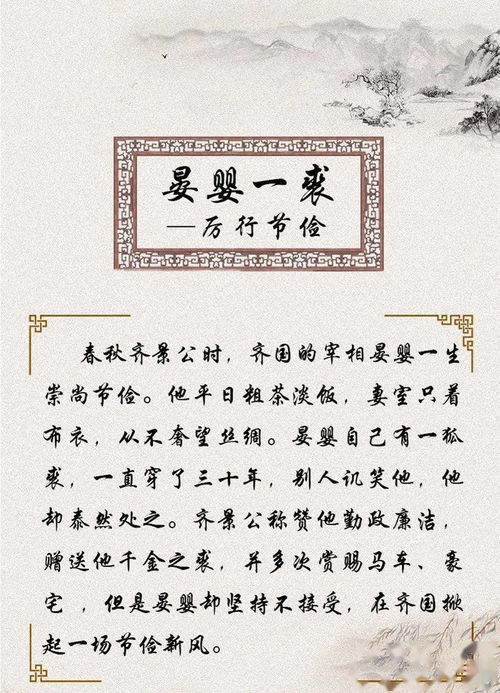 晏婴一裘
—厉行节俭
春秋齐景公时，齐国的宰相晏婴一生
崇尚节俭。他平日粗茶淡饭，妻室只着
布衣，从不奢望丝绸。晏婴自己有一狐
裘，一直穿了三十年，别人讥笑他，他
却泰然处之。齐景公称赞他勤政廉洁，
赠送他千金之裘，并多次赏赐马车、豪
宅 ，但是晏婴却坚持不接受，在齐国掀
起一场节俭新风。